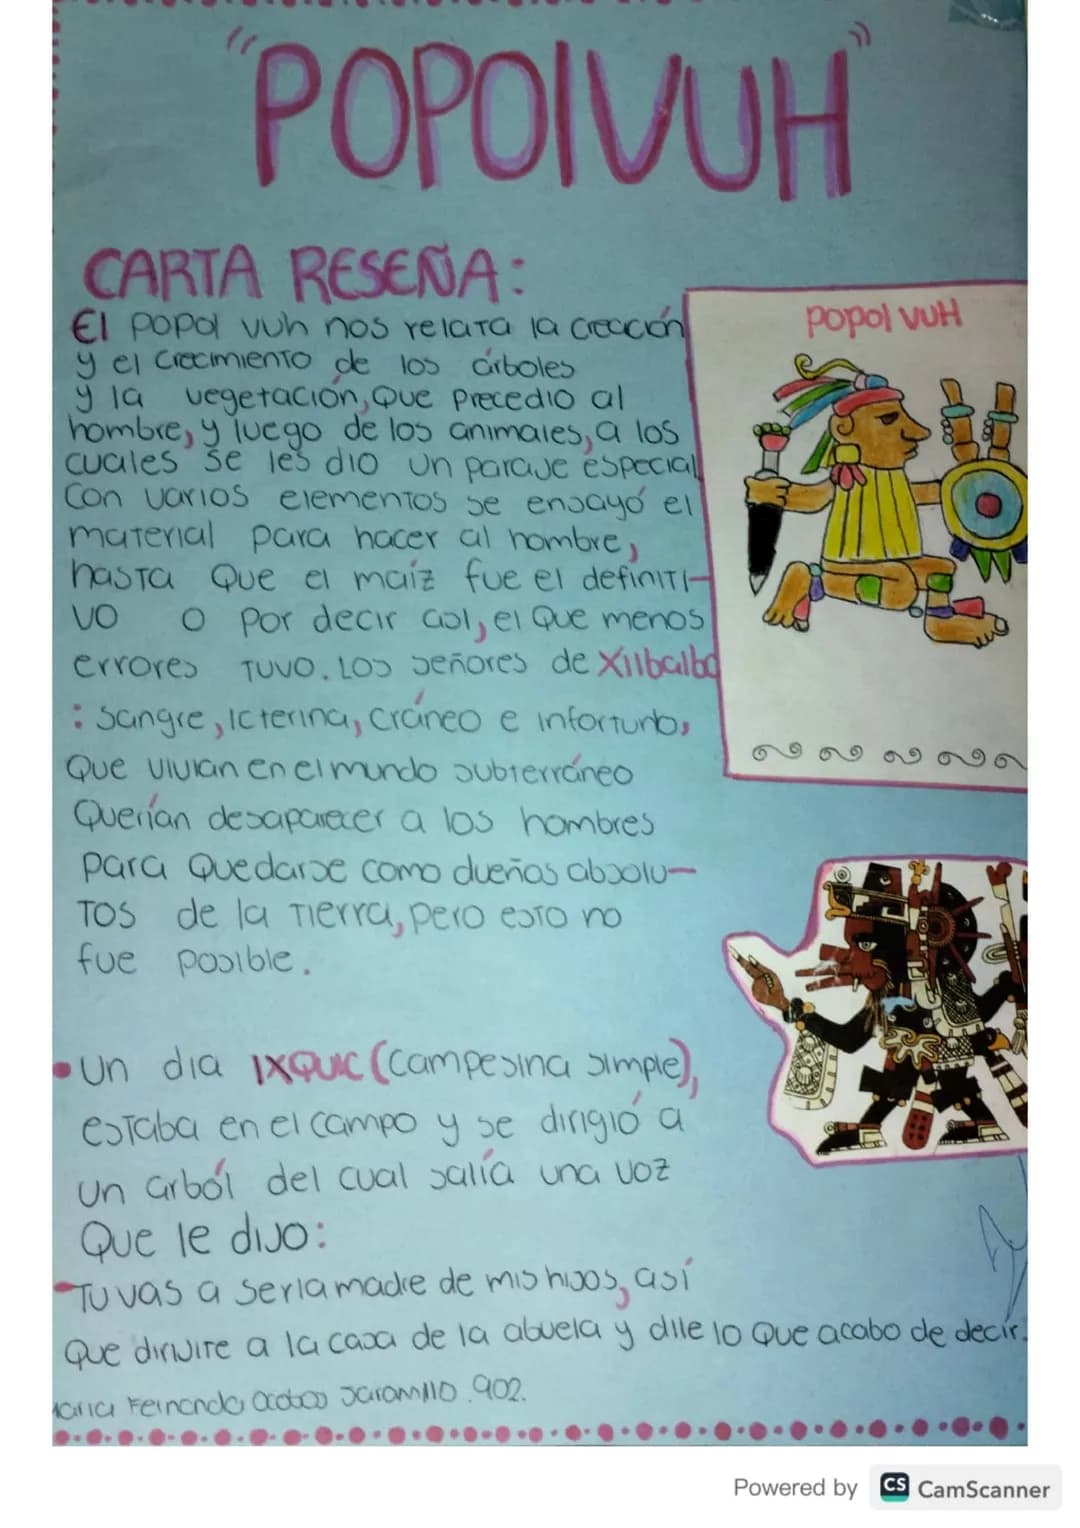 "POPOlVUH"
CARTA RESEÑA:
El popol vuh nos relata la creación
y el crecimiento de los árboles
y la vegetación, Que precedio al
hombre, y luego de los animales, a los
cuales se les dio un paraje especial
Con varios elementos se ensayó el
material para hacer al hombre,
hasta Que el maíz fue el definiti-
vo o Por decir así, el Que menos
errores tuvo. Los señores de Xilbalba
: Sangre, Icterina, Cráneo e infortunio,
Que vivian en el mundo subterráneo
Querían desaparecer a los hombres
para Quedarse como dueños absolu-
tos de la tierra, pero esto no
fue posible.
• Un dia IXQUIC (campesina simple),
estaba en el campo y se dirigió a
un arból del cual salía una voz
Que le dijo:
-Tu vas a ser la madre de mis hijos, así
Que dirijite a la casa de la abuela y dile lo Que acabo de decir.
Maria Fernanda Jaramillo .902.
popol vuH
Powered by CS CamScanner